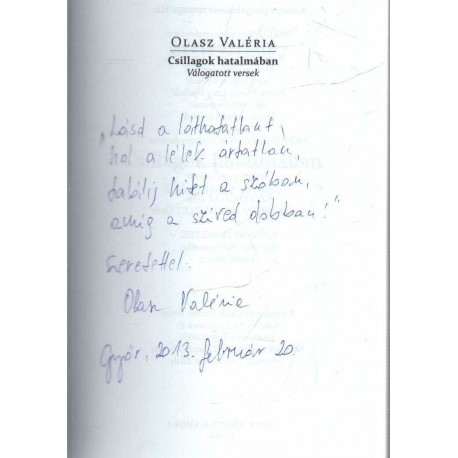 OLASZ VALÉRIA
Csillagok hatalmában
Válogatott versek
„Lásd a láthatatlant,
hol a lélek ártatlan
találj hitet a szóban,
amíg a szíved dobban!"
szeretettel:
Olasz Valéria
Győr, 2013. február 20.